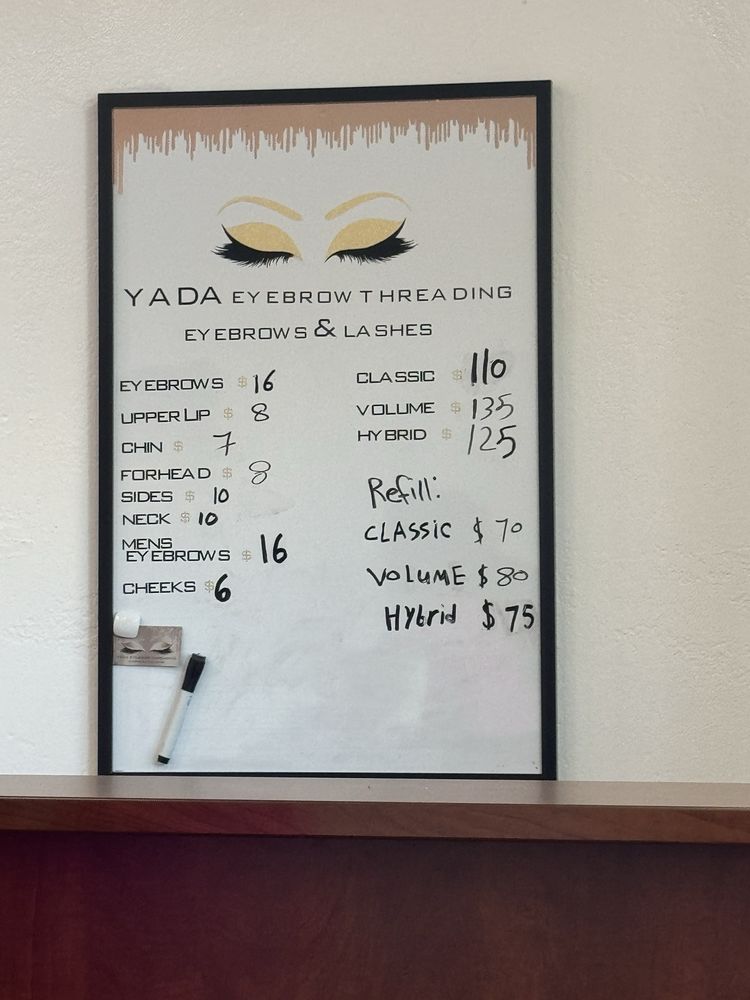 YADA EYEBROW THREADING
EYEBROWS & LASHES
EYEBROWS $ 16
UPPER LIP $ 8
CHIN $ 7
FORHEAD $ 8
SIDES $ 10
NECK $ 10
MENS
EYEBROWS $ 16
CHEEKS $ 6
CLASSIC $ 110
VOLUME $ 135
HYBRID $ 125
Refill:
CLASSIC $ 70
VOLUME $ 80
HYbrid $ 75
YADA EYEBROW THREADING